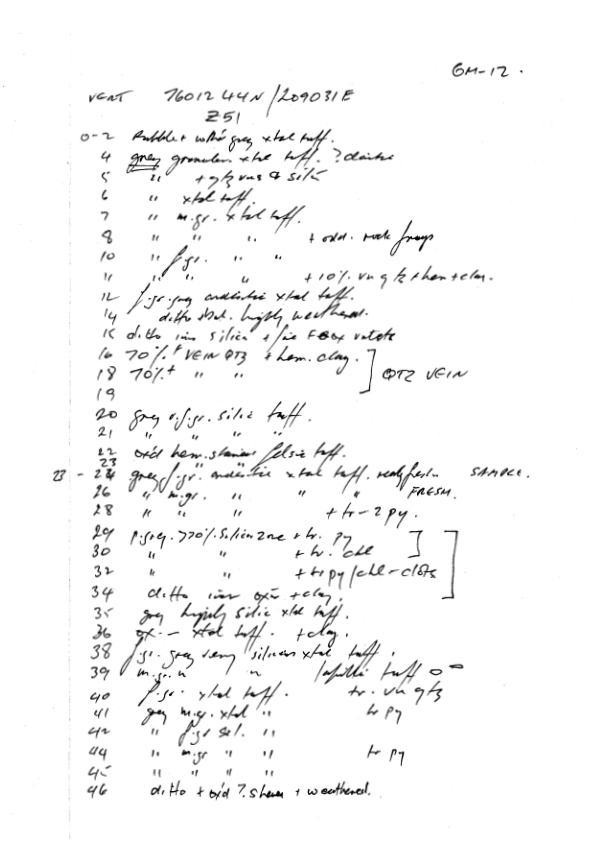 GM-12.
VERT 7601244N/209031E
Z51
0-2 Rubble + grey xtal tuff.
4 grey granular xtal tuff. ? dacite
5 " + qtz vns &
6 " xtal tuff.
7 " m.gr. xtal tuff.
8 " " " + odd. rock frags
10 " f.gr. " "
11 " " " + 10% vn qtz + hem + clay.
12 f.gr. grey andesitic xtal tuff.
14 ditto highly weathered.
15 ditto silica + FeOx
16 70%+ VEIN QTZ + hem. clay.
18 70%+ " " QTZ VEIN
19
20 grey v.f.gr. silic tuff.
21 " " " "
22 oxd hem. stained felsic tuff.
23
23 - 24 grey f.gr. andesitic xtal tuff. really fresh. SAMPLE.
26 " m.gr. " " " FRESH.
28 " " " + tr-2 py.
29 p.grey. >70% silica zone + tr. py
30 " " + tr. chl
32 " " + tr py/chl-clots
34 ditto + clay.
35 grey highly silic xtal tuff.
36 ox. - xtal tuff. + clay.
38 f.gr. grey very siliceous xtal tuff.
39 m.gr. " " lapilli tuff
40 f.gr. xtal tuff. tr. vn qtz
41 grey m.gr. xtal " tr py
42 " f.gr " "
44 " m.gr " " tr py
45 " " " "
46 ditto + ox'd ? shear + weathered.